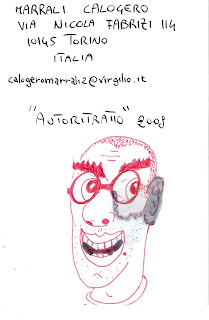 MARRALI CALOGERO
VIA NICOLA FABRIZI 114
10145 TORINO
ITALIA
calogeromarrali2@virgilio.it
"AUTORITRATTO" 2009